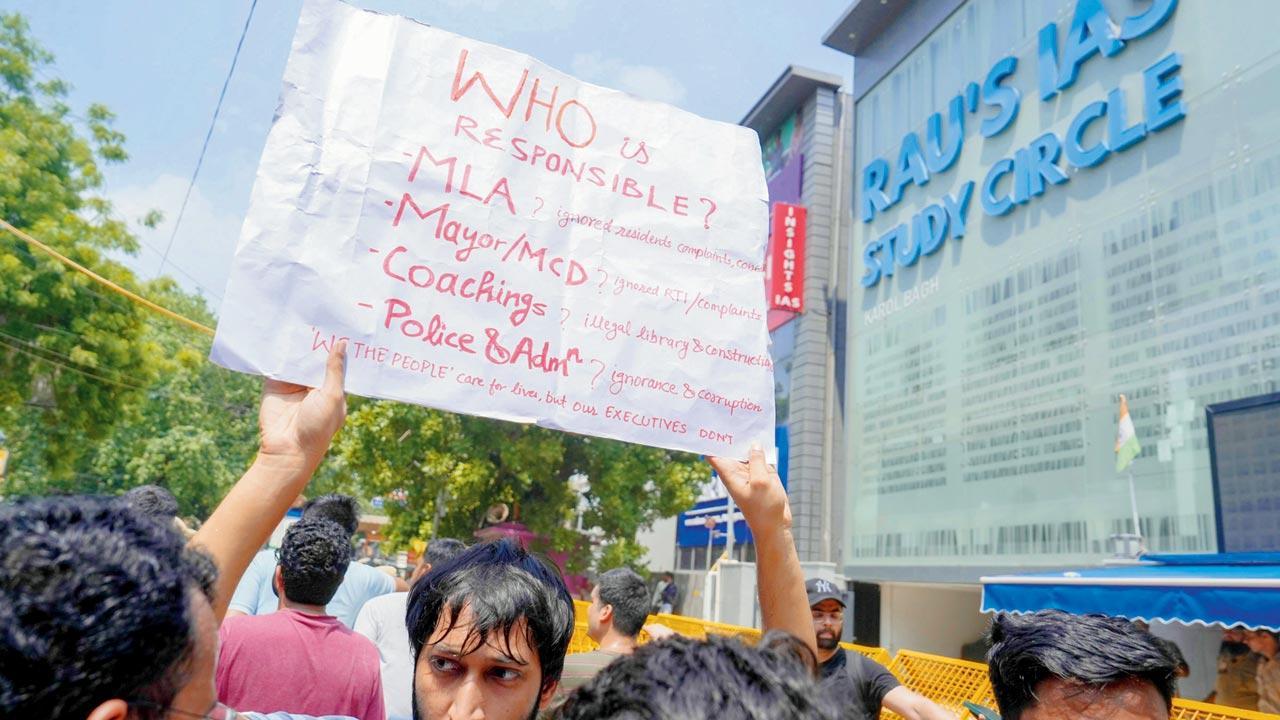 WHO is
RESPONSIBLE?
-MLA ? ignored residents complaints,
-Mayor/MCD ? ignored RTI/complaints
-Coachings ? illegal library & construction
-Police & Admn ? ignorance & corruption
'WE THE PEOPLE' care for lives, but our EXECUTIVES DON'T
INSIGHTS
IAS
RAU'S IAS
STUDY CIRCLE
KAROL BAGH
NY